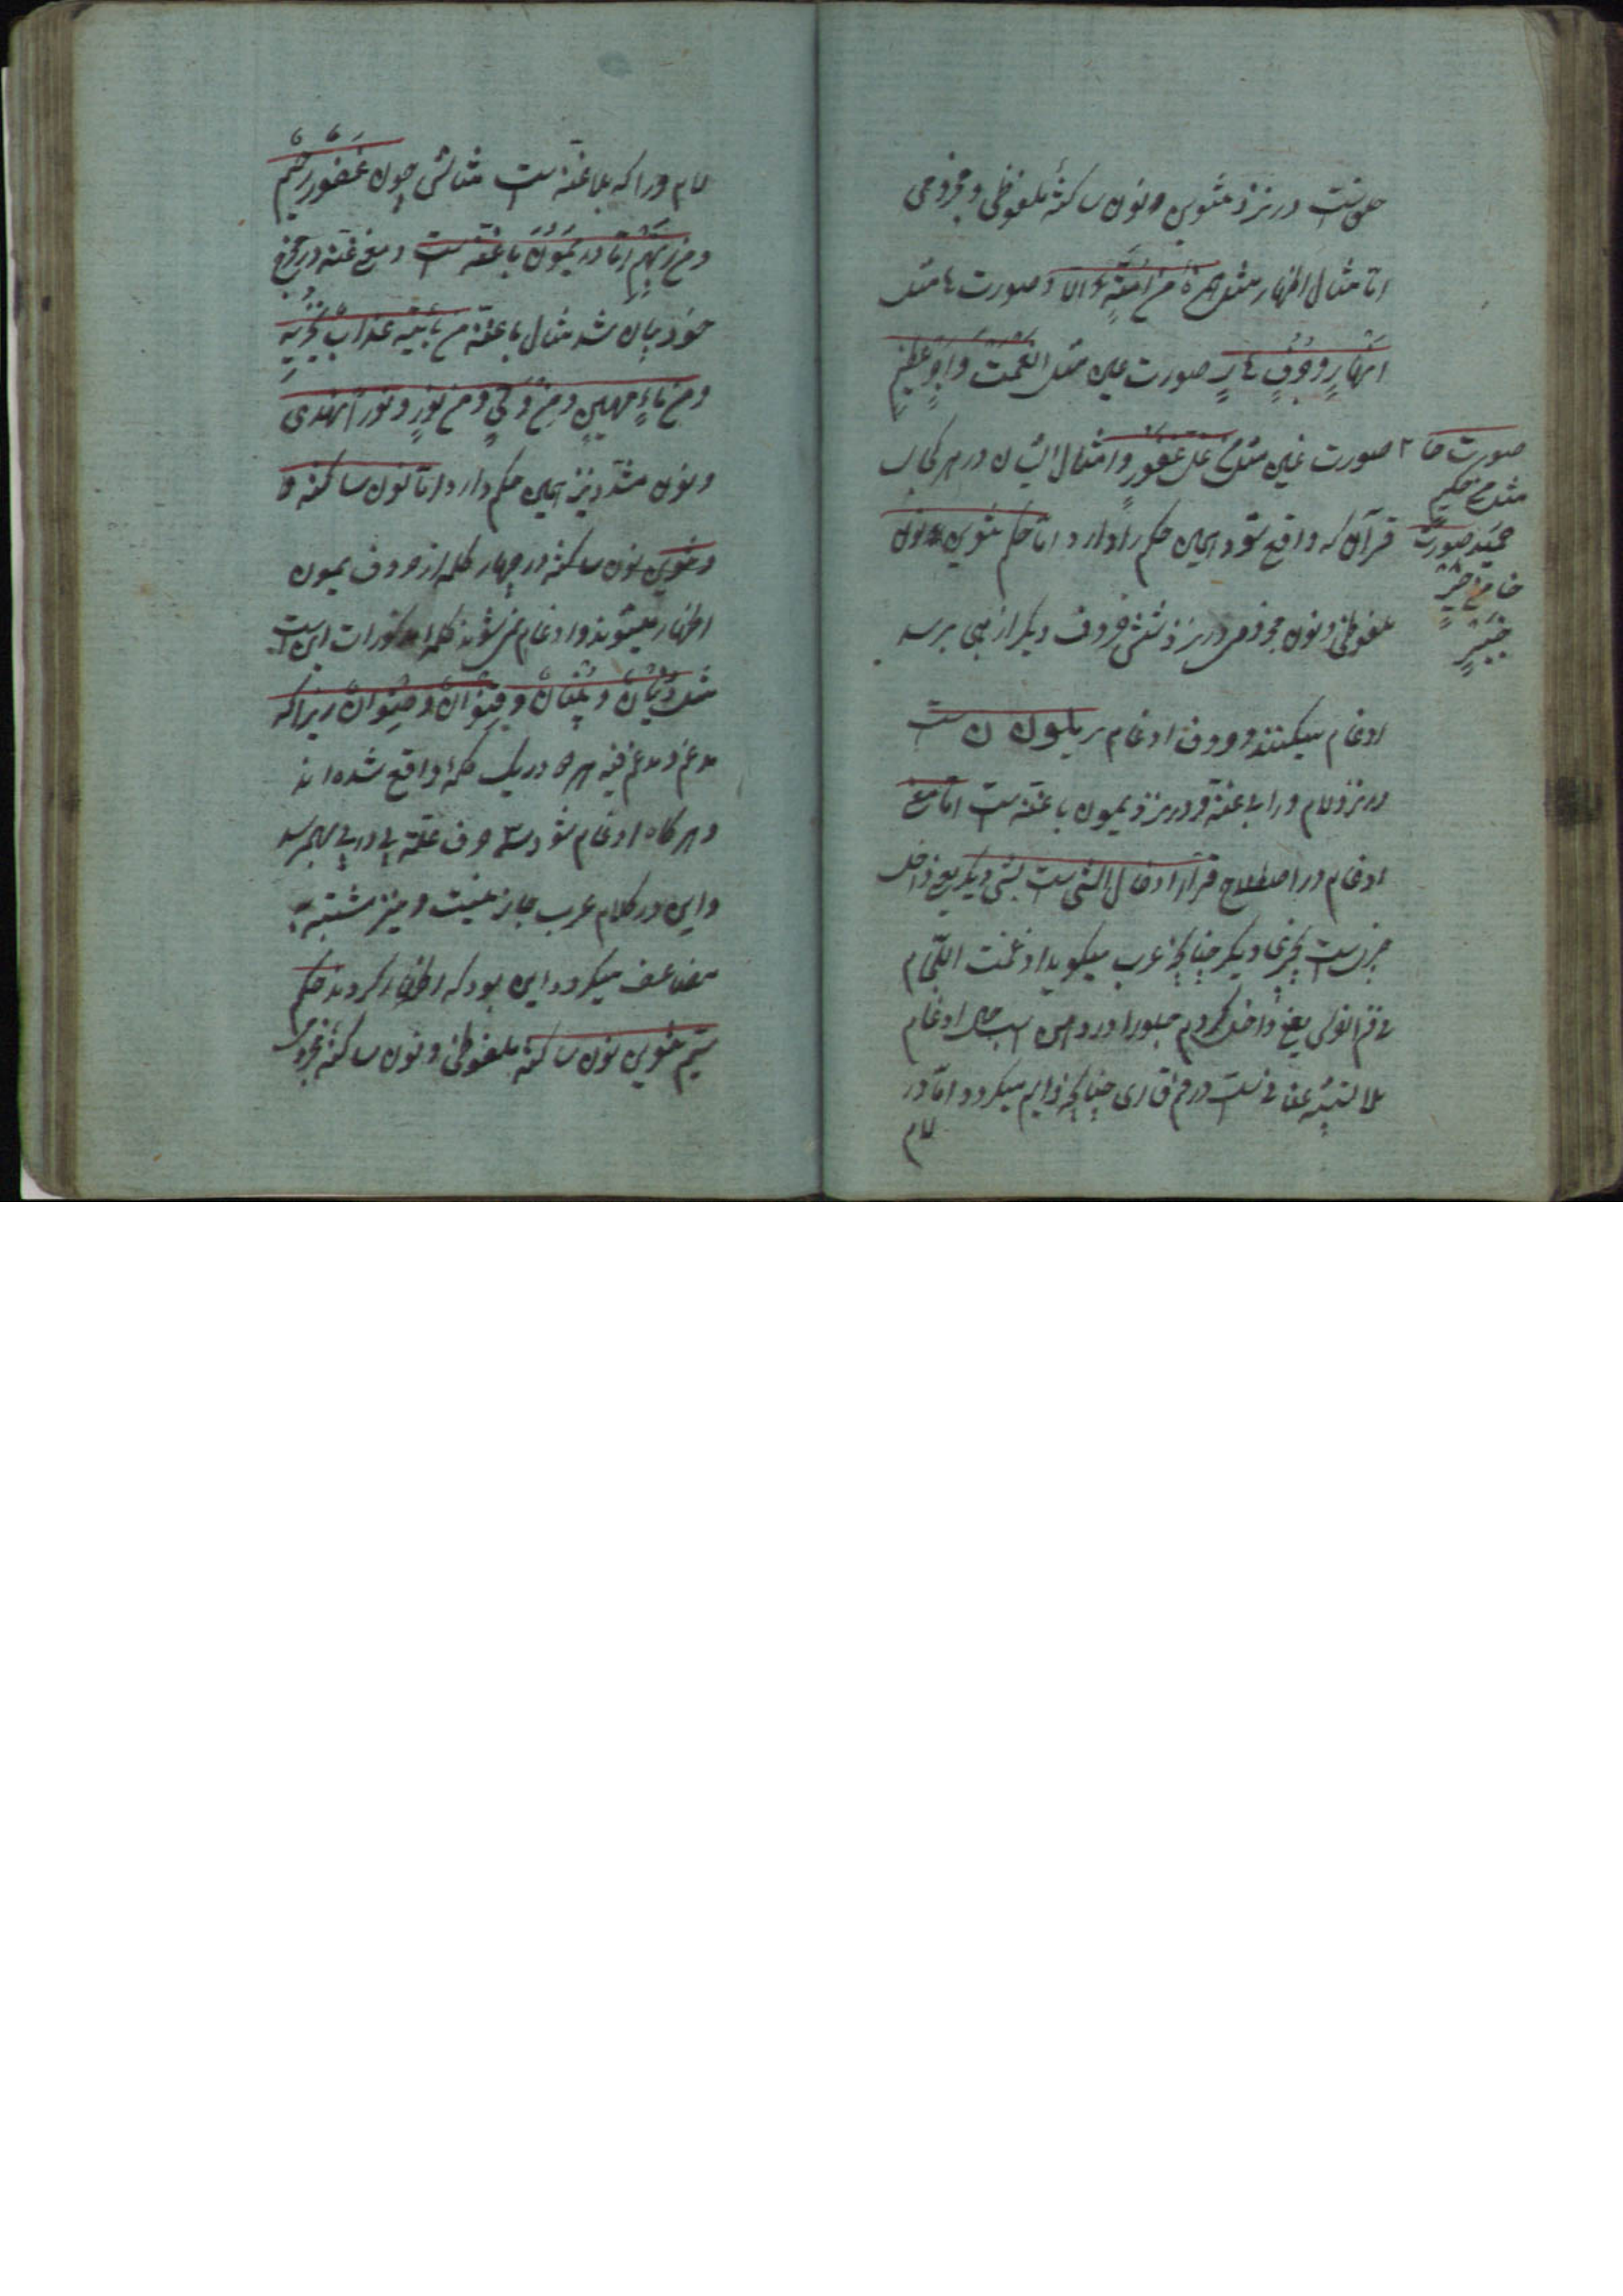 حلق است در نزد تنوین و نون ساکنهٔ ملفوظی و مجزومی
امّا مثال اظهار مثل همزه مَن اٰمَنَ و صورت ها مثل
اَنْهَارٍ و جُرُفٍ هَارٍ صورت عین مثل انعمتَ وَ اَجْرٌ عَظِیمٍ
صورت غین مثل مِنْ غِلٍّ غفورٍ و امثال ایشان در هر کجا
قرآن که واقع شود همین حکم را دارد امّا حکم تنوین و نون
ملفوظی و نون مجزومی در نزد شش حروف دیگر از تهجی برسد
ادغام میکنند و حروف ادغام یرملون است
در نزد لام و را بی غنّه و در نزد یمون با غنّه است امّا معنی
ادغام در اصطلاح قرّاء ادخال الشی است بشی دیگر یعنی داخل
چیزیست بچیزی دیگر چنانچه عرب میکوید ادغمت اللّجام
فی فم الفرس یعنی داخل کردم جلو را در دهن اسب
صورت حا
مثل حکیم
حمید صورت
خا مِن خیر
خبیرٍ
لام
لام و را که بلا غنّه است مثالش چون غَفُورٌ رَحِیم
و مِن رَبِّهِم امّا در یَمُونُ با غنّه است و معنی غنّه در مخرج
خود بیان شد مثال با غنّه مَن یَأتیه عذابٌ یُخْزِیه
و مِن مَاءٍ مهینٍ و مِن وَلِیٍ و مِن نُورٍ و نوراً نهدی
و نون مشدّد نیز همین حکم دارد امّا نون ساکنه و
و تنوین نون ساکنه در چهار کلمه از حروف یمون
اظهار میشوند و ادغام نمی شوند کلمه مذکورات این است
مثل دُنْیَان و بُنْیَان و قِنْوَان و صِنْوَان زیرا که
مدغم و مدغم فیه هر دو در یک کلمه واقع شده اند
و هر کاه ادغام شود سه حرف علّه پی در پی بهم رسد
و این در کلام عرب جایز نیست و نیز مشتبه به
مضاعف میکردد این بود که اظهار کردند حکم
سیّم تنوین نون ساکنه ملفوظی و نون ساکنه مجزومی